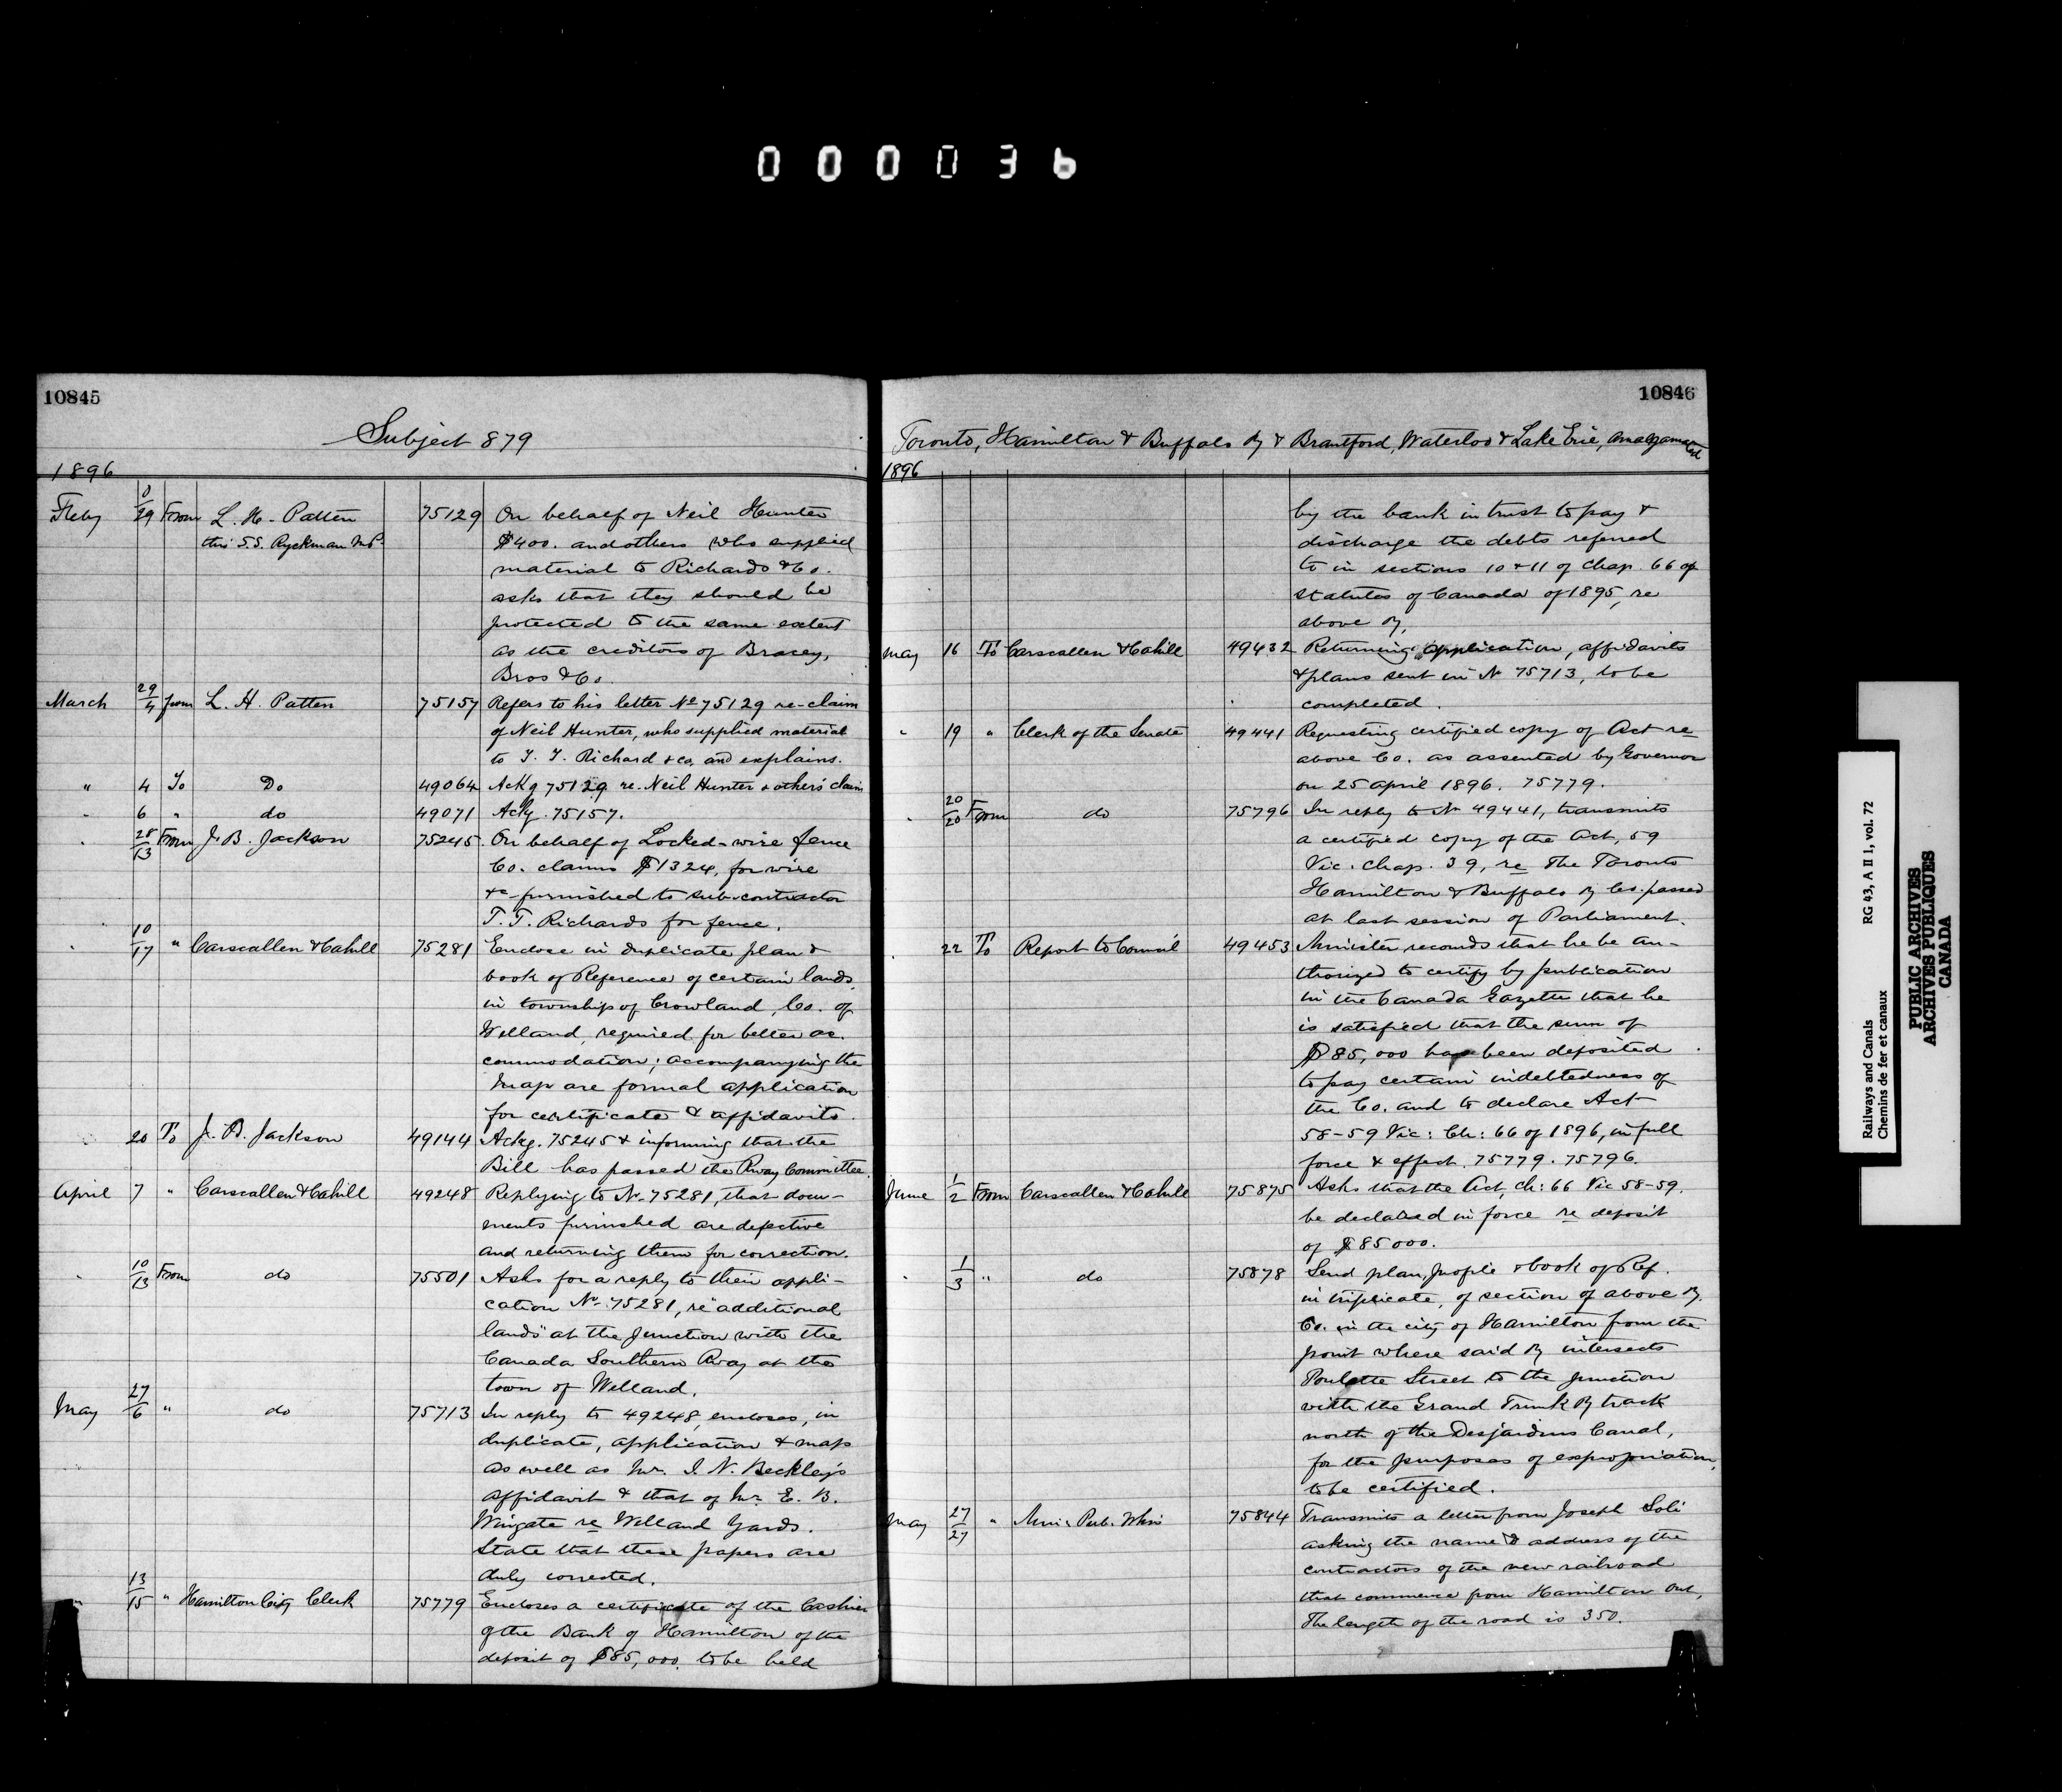 000036
10845
Subject 879
1896
Feby 8/29 From L. H. Patten 75129 On behalf of Neil Hunter
thro S.S. Ryckman M.P. $400. and others who supplied
material to Richards & Co.
asks that they should be
protected to the same extent
as the creditors of Bracey,
Bros & Co.
March 29/4 from L. H. Patten 75157 Refers to his letter No 75129 re-claim
of Neil Hunter, who supplied material
to T. T. Richard & co, and explains.
" 4 To Do 49064 Ackg 75129 re. Neil Hunter & others' claim
" 6 " do 49071 Ackg. 75157.
" 28/13 From J. B. Jackson 75245. On behalf of Locked-wire fence
Co. claims $1324, for wire
&c furnished to sub-contractor
T. T. Richards for fence.
" 10/17 " Carscallen & Cahill 75281 Enclose in duplicate plan &
book of Reference of certain lands,
in township of Crowland, Co. of
Welland, required for better ac-
commodation; accompanying the
Map are formal application
for certificate & affidavits.
" 20 To J. B. Jackson 49144 Ackg. 75245 & informing that the
Bill has passed the Rway Committee.
April 7 " Carscallen & Cahill 49248 Replying to No. 75281, that docu-
ments furnished are defective
and returning them for correction.
" 10/13 From do 75501 Asks for a reply to their appli-
cation No. 75281, re "additional
lands" at the Junction with the
Canada Southern Rway at the
town of Welland.
May 27/6 " do 75713 In reply to 49248, encloses, in
duplicate, application & maps
as well as Mr. I. N. Beckley's
affidavit & that of Mr. E. B.
Wingate re Welland Yards.
State that these papers are
duly corrected.
" 13/15 " Hamilton City Clerk 75779 Encloses a certificate of the Cashier
of the Bank of Hamilton of the
deposit of $85,000. to be held
10846
Toronto, Hamilton & Buffalo Ry & Brantford, Waterloo & Lake Erie, amalgamated
1896
by the bank in trust to pay &
discharge the debts referred
to in sections 10 & 11 of Chap. 66 of
statutes of Canada of 1895, re
above Ry,
May 16 To Carscallen & Cahill 49432 Returning application, affidavits
& plans sent in No 75713, to be
completed.
" 19 " Clerk of the Senate 49441 Requesting certified copy of Act re
above Co. as assented by Governor
on 25 April 1896. 75779.
" 20/20 From do 75796 In reply to No 49441, transmits
a certified copy of the Act, 59
Vic. Chap. 39, re The Toronto
Hamilton & Buffalo Ry Co. passed
at last session of Parliament.
" 22 To Report to Council 49453 Minister recomds that he be au-
thorized to certify by publication
in the Canada Gazette that he
is satisfied that the sum of
$85,000 has been deposited
to pay certain indebtedness of
the Co. and to declare Act
58-59 Vic: Ch: 66 of 1896, in full
force & effect. 75779. 75796.
June 1/2 From Carscallen & Cahill 75875 Asks that the Act, Ch: 66 Vic 58-59.
be declared in force re deposit
of $85000.
" 1/3 " do 75878 Send plan, profile & book of Ref.
in triplicate, of section of above Ry.
Co. in the city of Hamilton from the
point where said Ry intersects
Poulette Street to the junction
with the Grand Trunk Ry track
north of the Desjardins Canal,
for the purposes of expropriation,
to be certified.
May 27/27 " Min: Pub. Wks 75844 Transmits a letter from Joseph Soli
asking the name & address of the
contractors of the new railroad
that commence from Hamilton Ont,
The length of the road is 350.
Railways and Canals RG 43, A II 1, vol. 72
Chemins de fer et canaux
PUBLIC ARCHIVES
ARCHIVES PUBLIQUES
CANADA